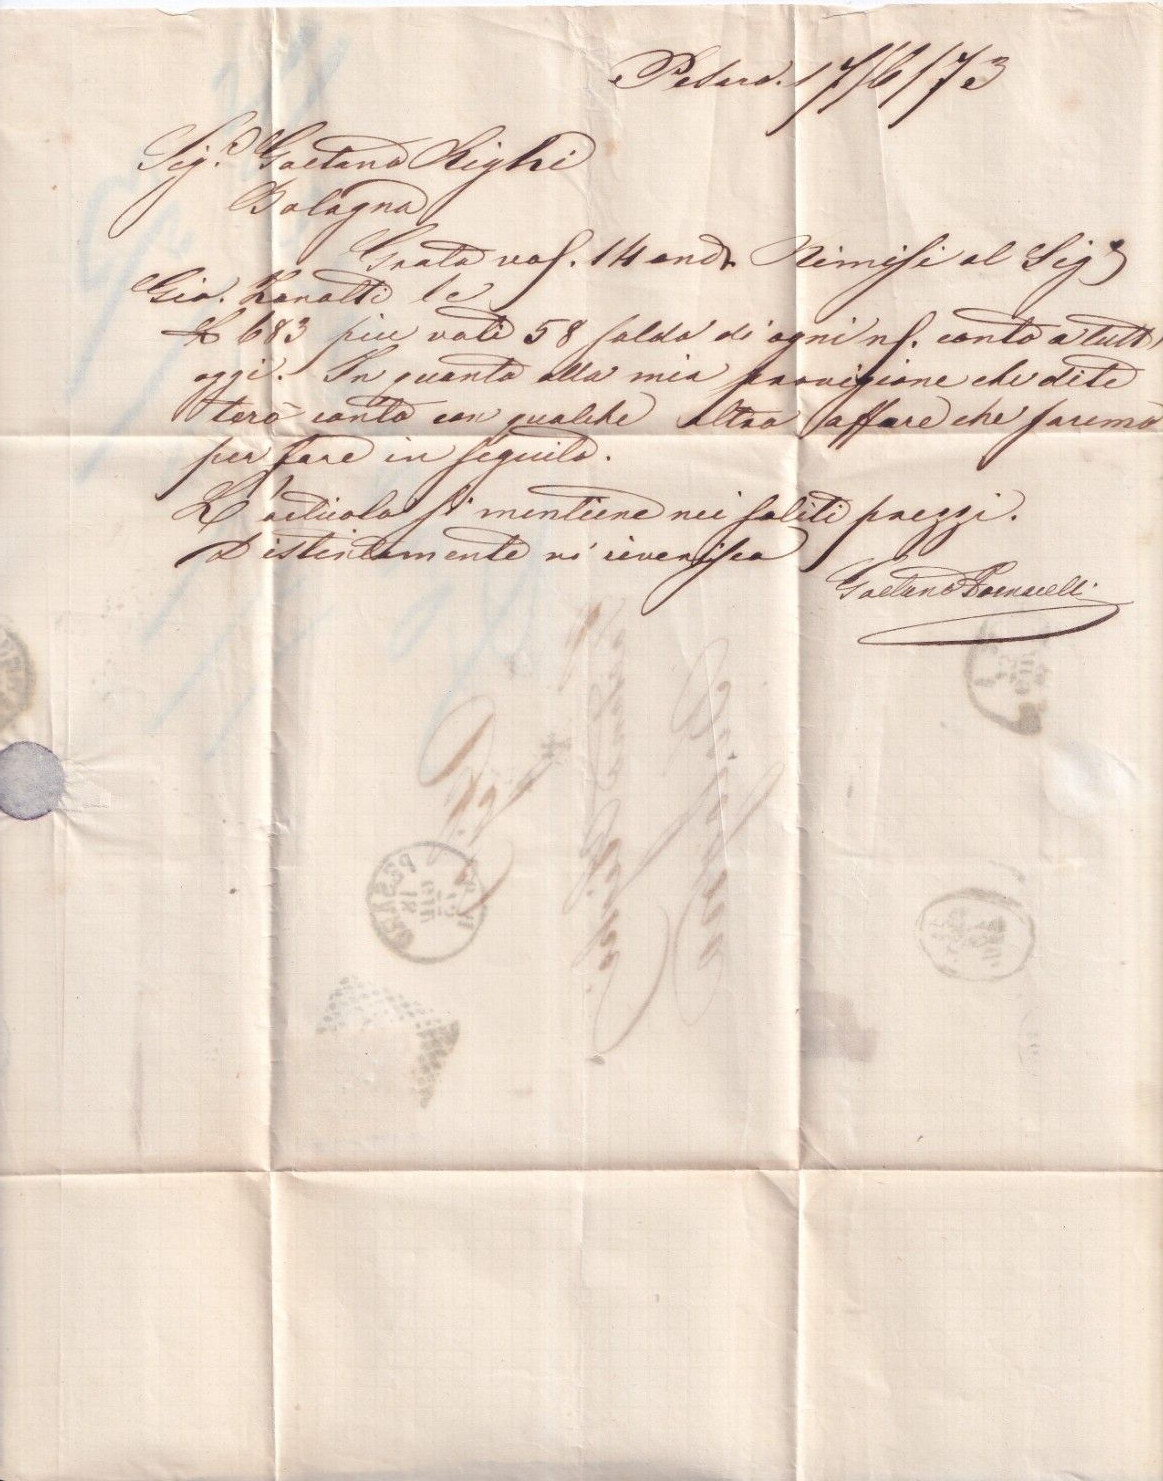 Pesaro. 17/6/73
Sig.r Gaetano Righi
Bologna
Grata vos. 14 andte Rimisi al Sigr
Gio. Zanotti le
£ 683 piu voti 58 saldo di ogni ns. conto a tutt'
oggi. In quanto alla mia provigione che dite
terò conto con qualche altro affare che saremo
per fare in seguito.
L'articolo si mentiene nei soliti prezzi.
Distintamente vi riverisco
Gaetano
PESARO
18 GIU